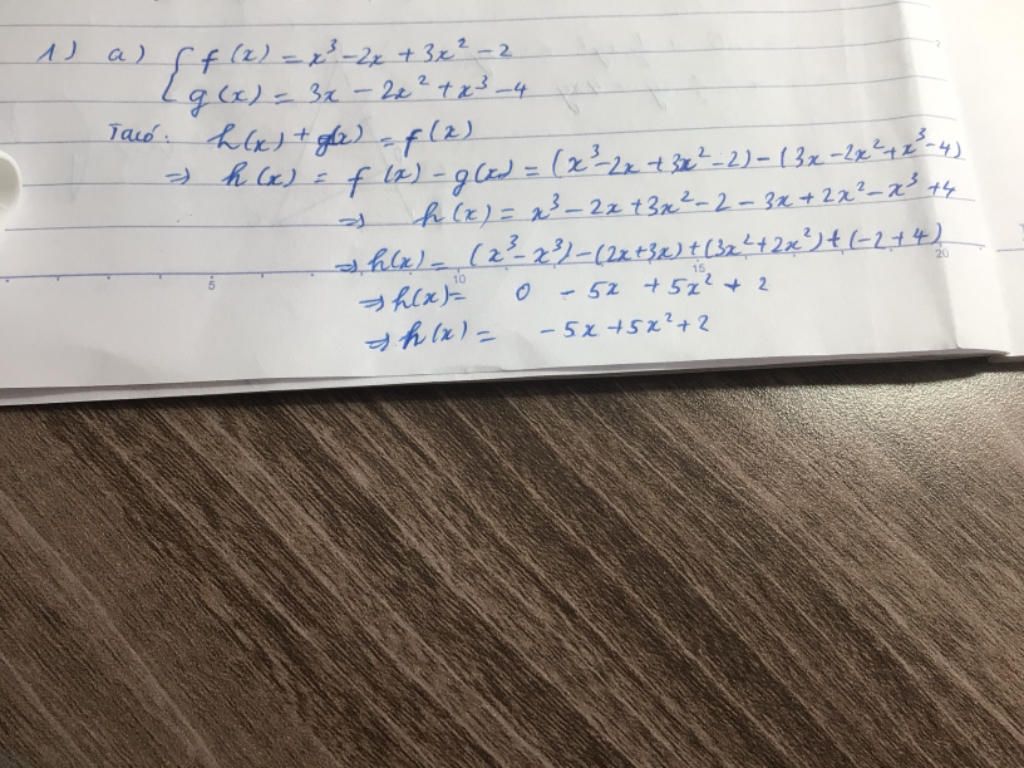 1) a) { f(x) = x³ - 2x + 3x² - 2
g(x) = 3x - 2x² + x³ - 4
Ta có: h(x) + g(x) = f(x)
⇒ h(x) = f(x) - g(x) = (x³ - 2x + 3x² - 2) - (3x - 2x² + x³ - 4)
⇒ h(x) = x³ - 2x + 3x² - 2 - 3x + 2x² - x³ + 4
⇒ h(x) = (x³ - x³) - (2x + 3x) + (3x² + 2x²) + (-2 + 4)
5 10 15 20
⇒ h(x) = 0 - 5x + 5x² + 2
⇒ h(x) = -5x + 5x² + 2